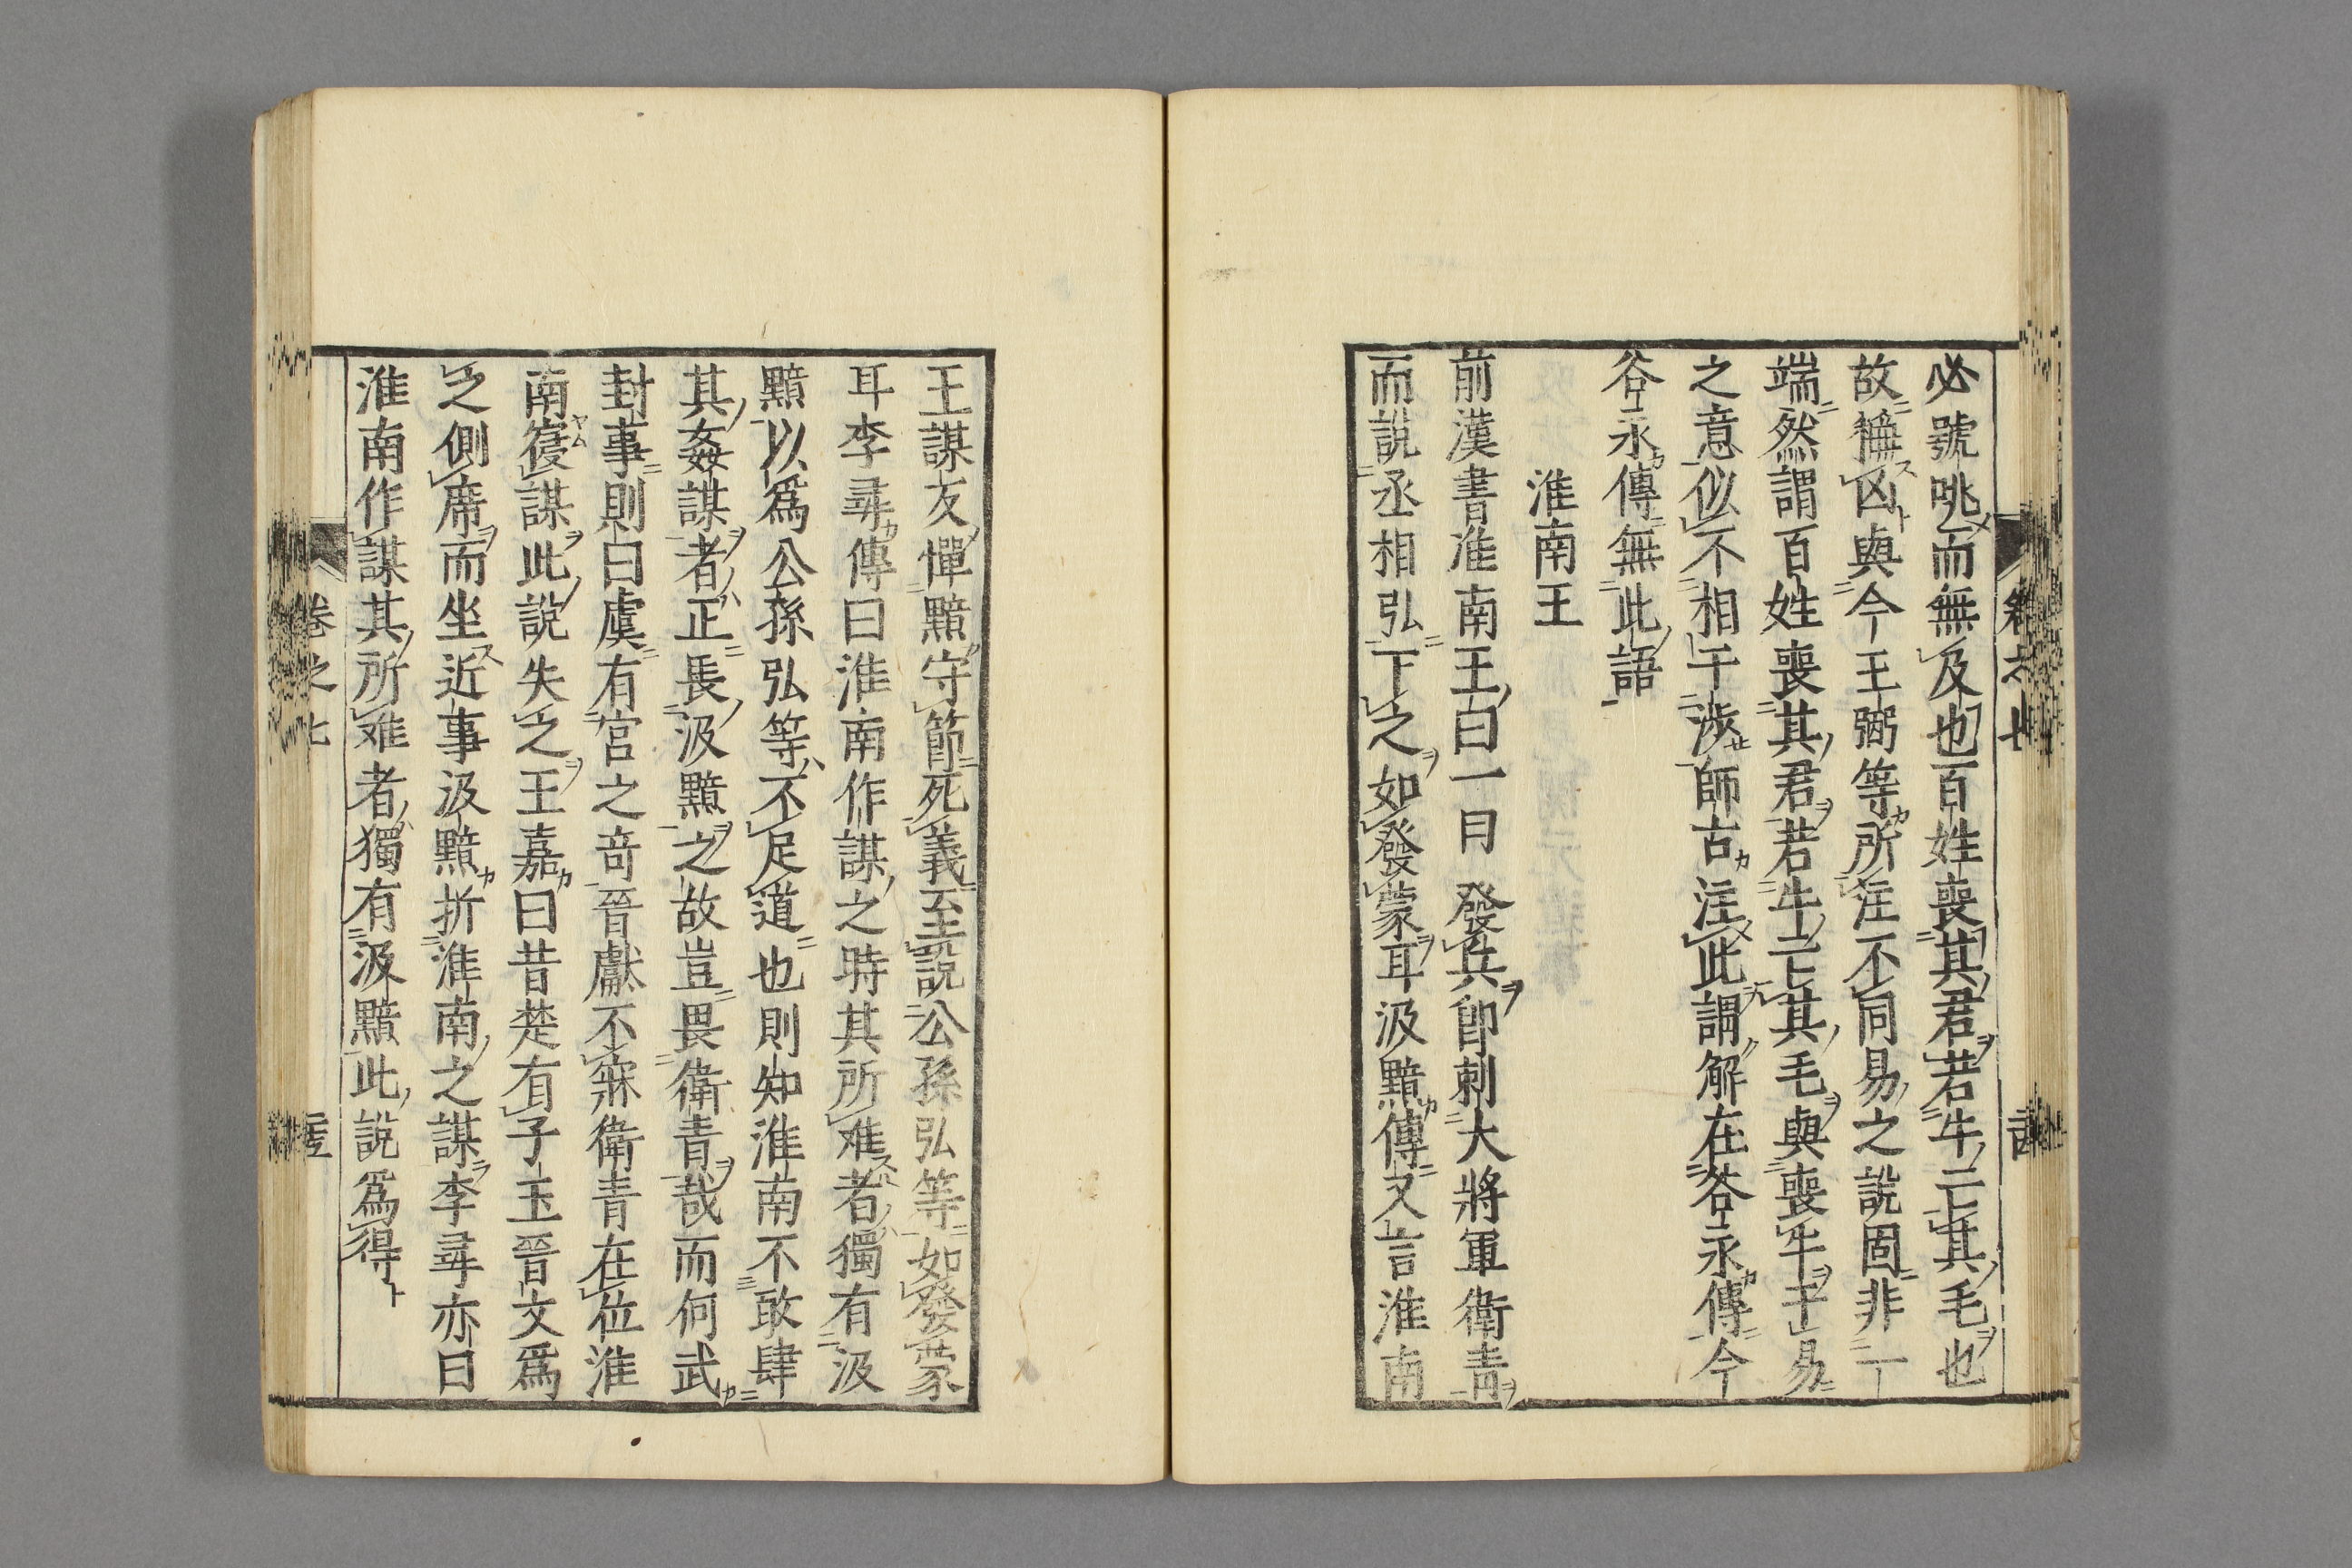 必號咷而無及也百姓喪其君若牛亡其毛也
故稱凶與今王弼等所注不同易之說固非一
端然謂百姓喪其君若牛亡其毛與喪牛于易
之意似不相干涉師古注此謂解在谷永傳今
谷永傳無此語
淮南王
前漢書淮南王曰一日發兵卽刺大將軍衛青
而說丞相弘下之如發蒙耳汲黯傳又言淮南
王謀反憚黯守節死義至說公孫弘等如發蒙
耳李尋傳曰淮南作謀之時其所难者獨有汲
黯以爲公孫弘等不足道也則知淮南不敢肆
其姦謀者正畏汲黯之故豈畏衛青哉而何武
封事則曰虞有宮之奇晉獻不寐衛青在位淮
南寑謀此說失之王嘉曰昔楚有子玉晉文爲
之側席而坐近事汲黯折淮南之謀李尋亦曰
淮南作謀其所难者獨有汲黯此說爲得
卷之七